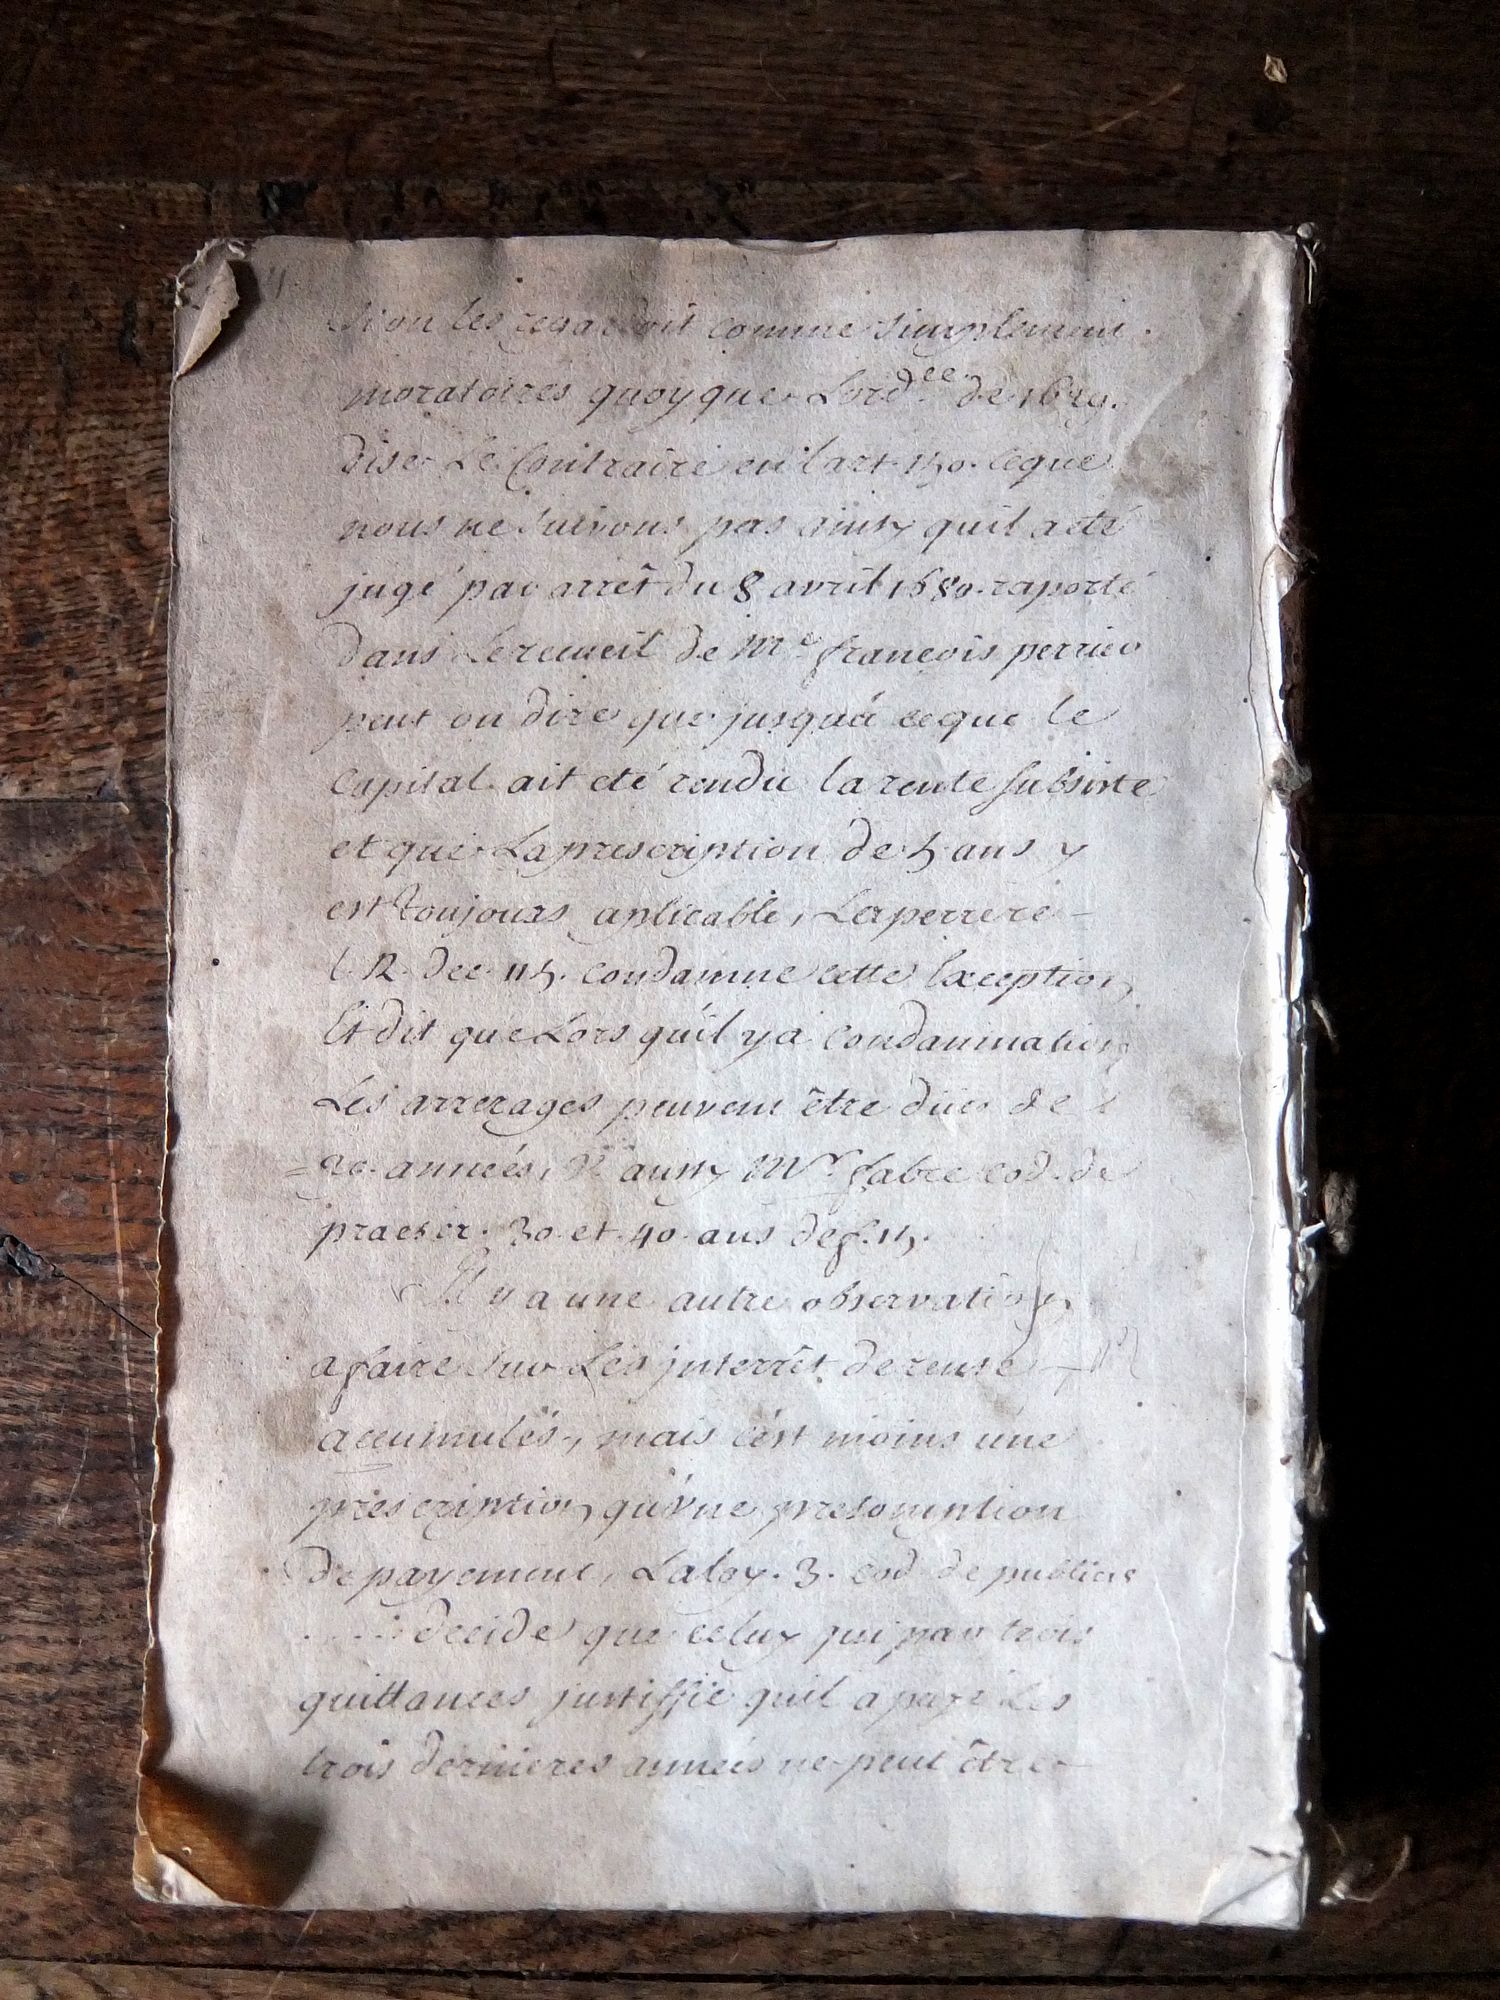 si on les regardoit comme simplement
moratoires quoyque Lord.ce de 1629.
dise Le Contraire en l'art. 150. ceque
nous ne suivons pas ainsy quil a eté
jugé par arrêt du 8 avril 1680. raporté
dans Le recueil de Me françois perrier
peut on dire que jusqua ceque le
Capital ait eté rendu la rente subsiste
et que La prescription de 5 ans y
est toujours aplicable, Laperrere
l. 12. dec. 115. condamne cette Exception
Et dit que Lors quil y a condamnation
Les arrerages peuvent être dües de
=30. années, V. aussy Mr. fabre cod. de
praescr. 30 et 40 ans def. 15.
Il y a une autre observation
a faire sur Les jnterrêt de rente
accumulés, mais c'ést moins üne
préscription, qu'une presomption
de payement, La loy. 3. cod. de publicis
..... decide que celuy qui par trois
quittances justiffie quil a payé Les
trois dernieres années ne peut être